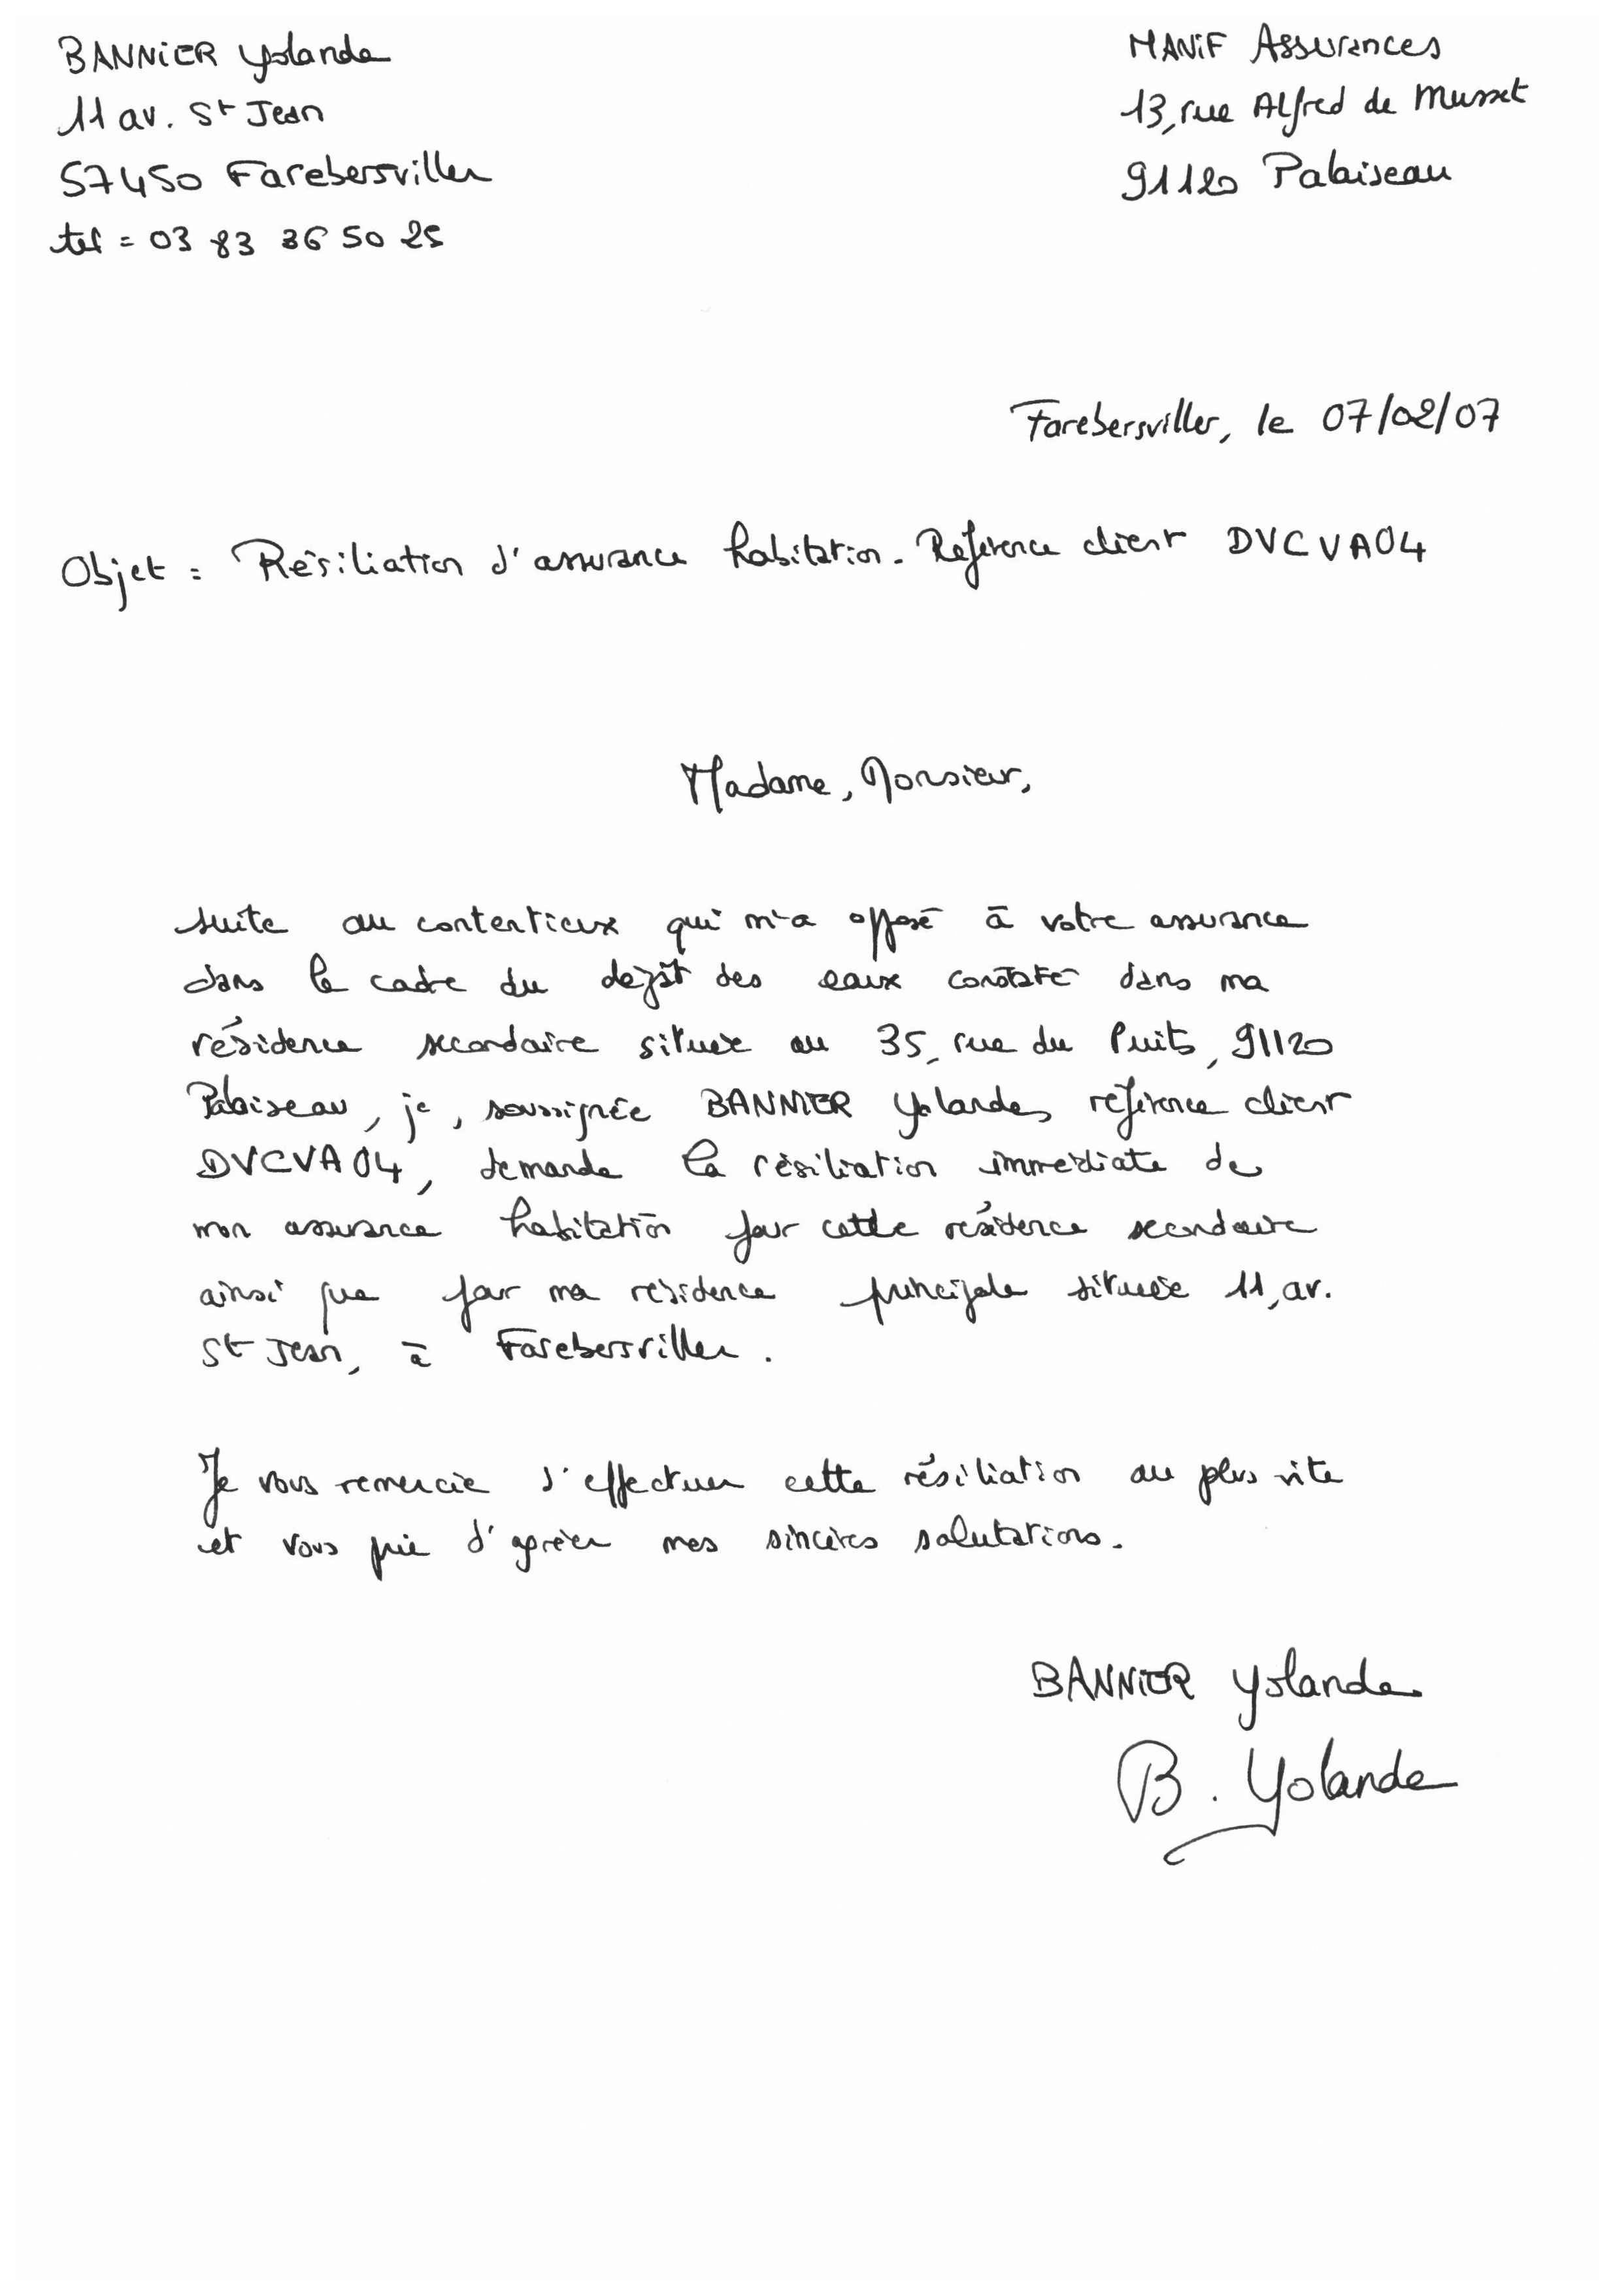 BANNIER Yolande
11 av. St Jean
57450 Farebersviller
tel = 03 83 36 50 25
MANIF Assurances
13, rue Alfred de Musset
91120 Palaiseau
Farebersviller, le 07/02/07
Objet = Résiliation d'assurance habitation - Référence client DVCVA04
Madame, Monsieur,
suite au contentieux qui m'a opposé à votre assurance
dans le cadre du degât des eaux constaté dans ma
résidence secondaire située au 35, rue du Puits, 91120
Palaiseau, je, soussignée BANNIER Yolande, référence client
DVCVA04, demande la résiliation immédiate de
mon assurance habitation pour cette résidence secondaire
ainsi que pour ma résidence principale située 11, av.
St Jean, à Farebersviller.
Je vous remercie d'effectuer cette résiliation au plus vite
et vous prie d'agréer mes sincères salutations.
BANNIER Yolande
B. Yolande